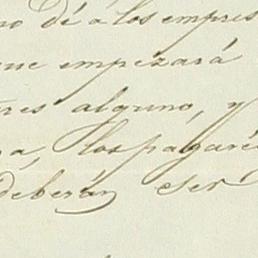 no dé a los empres
que empezará
tres alguno, y
a, los pagaré
deberán ser